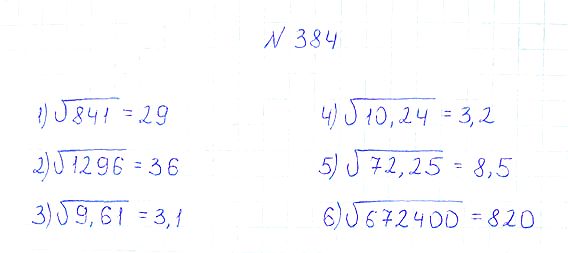 N 384
1) √841 = 29
2) √1296 = 36
3) √9,61 = 3,1
4) √10,24 = 3,2
5) √72,25 = 8,5
6) √672400 = 820